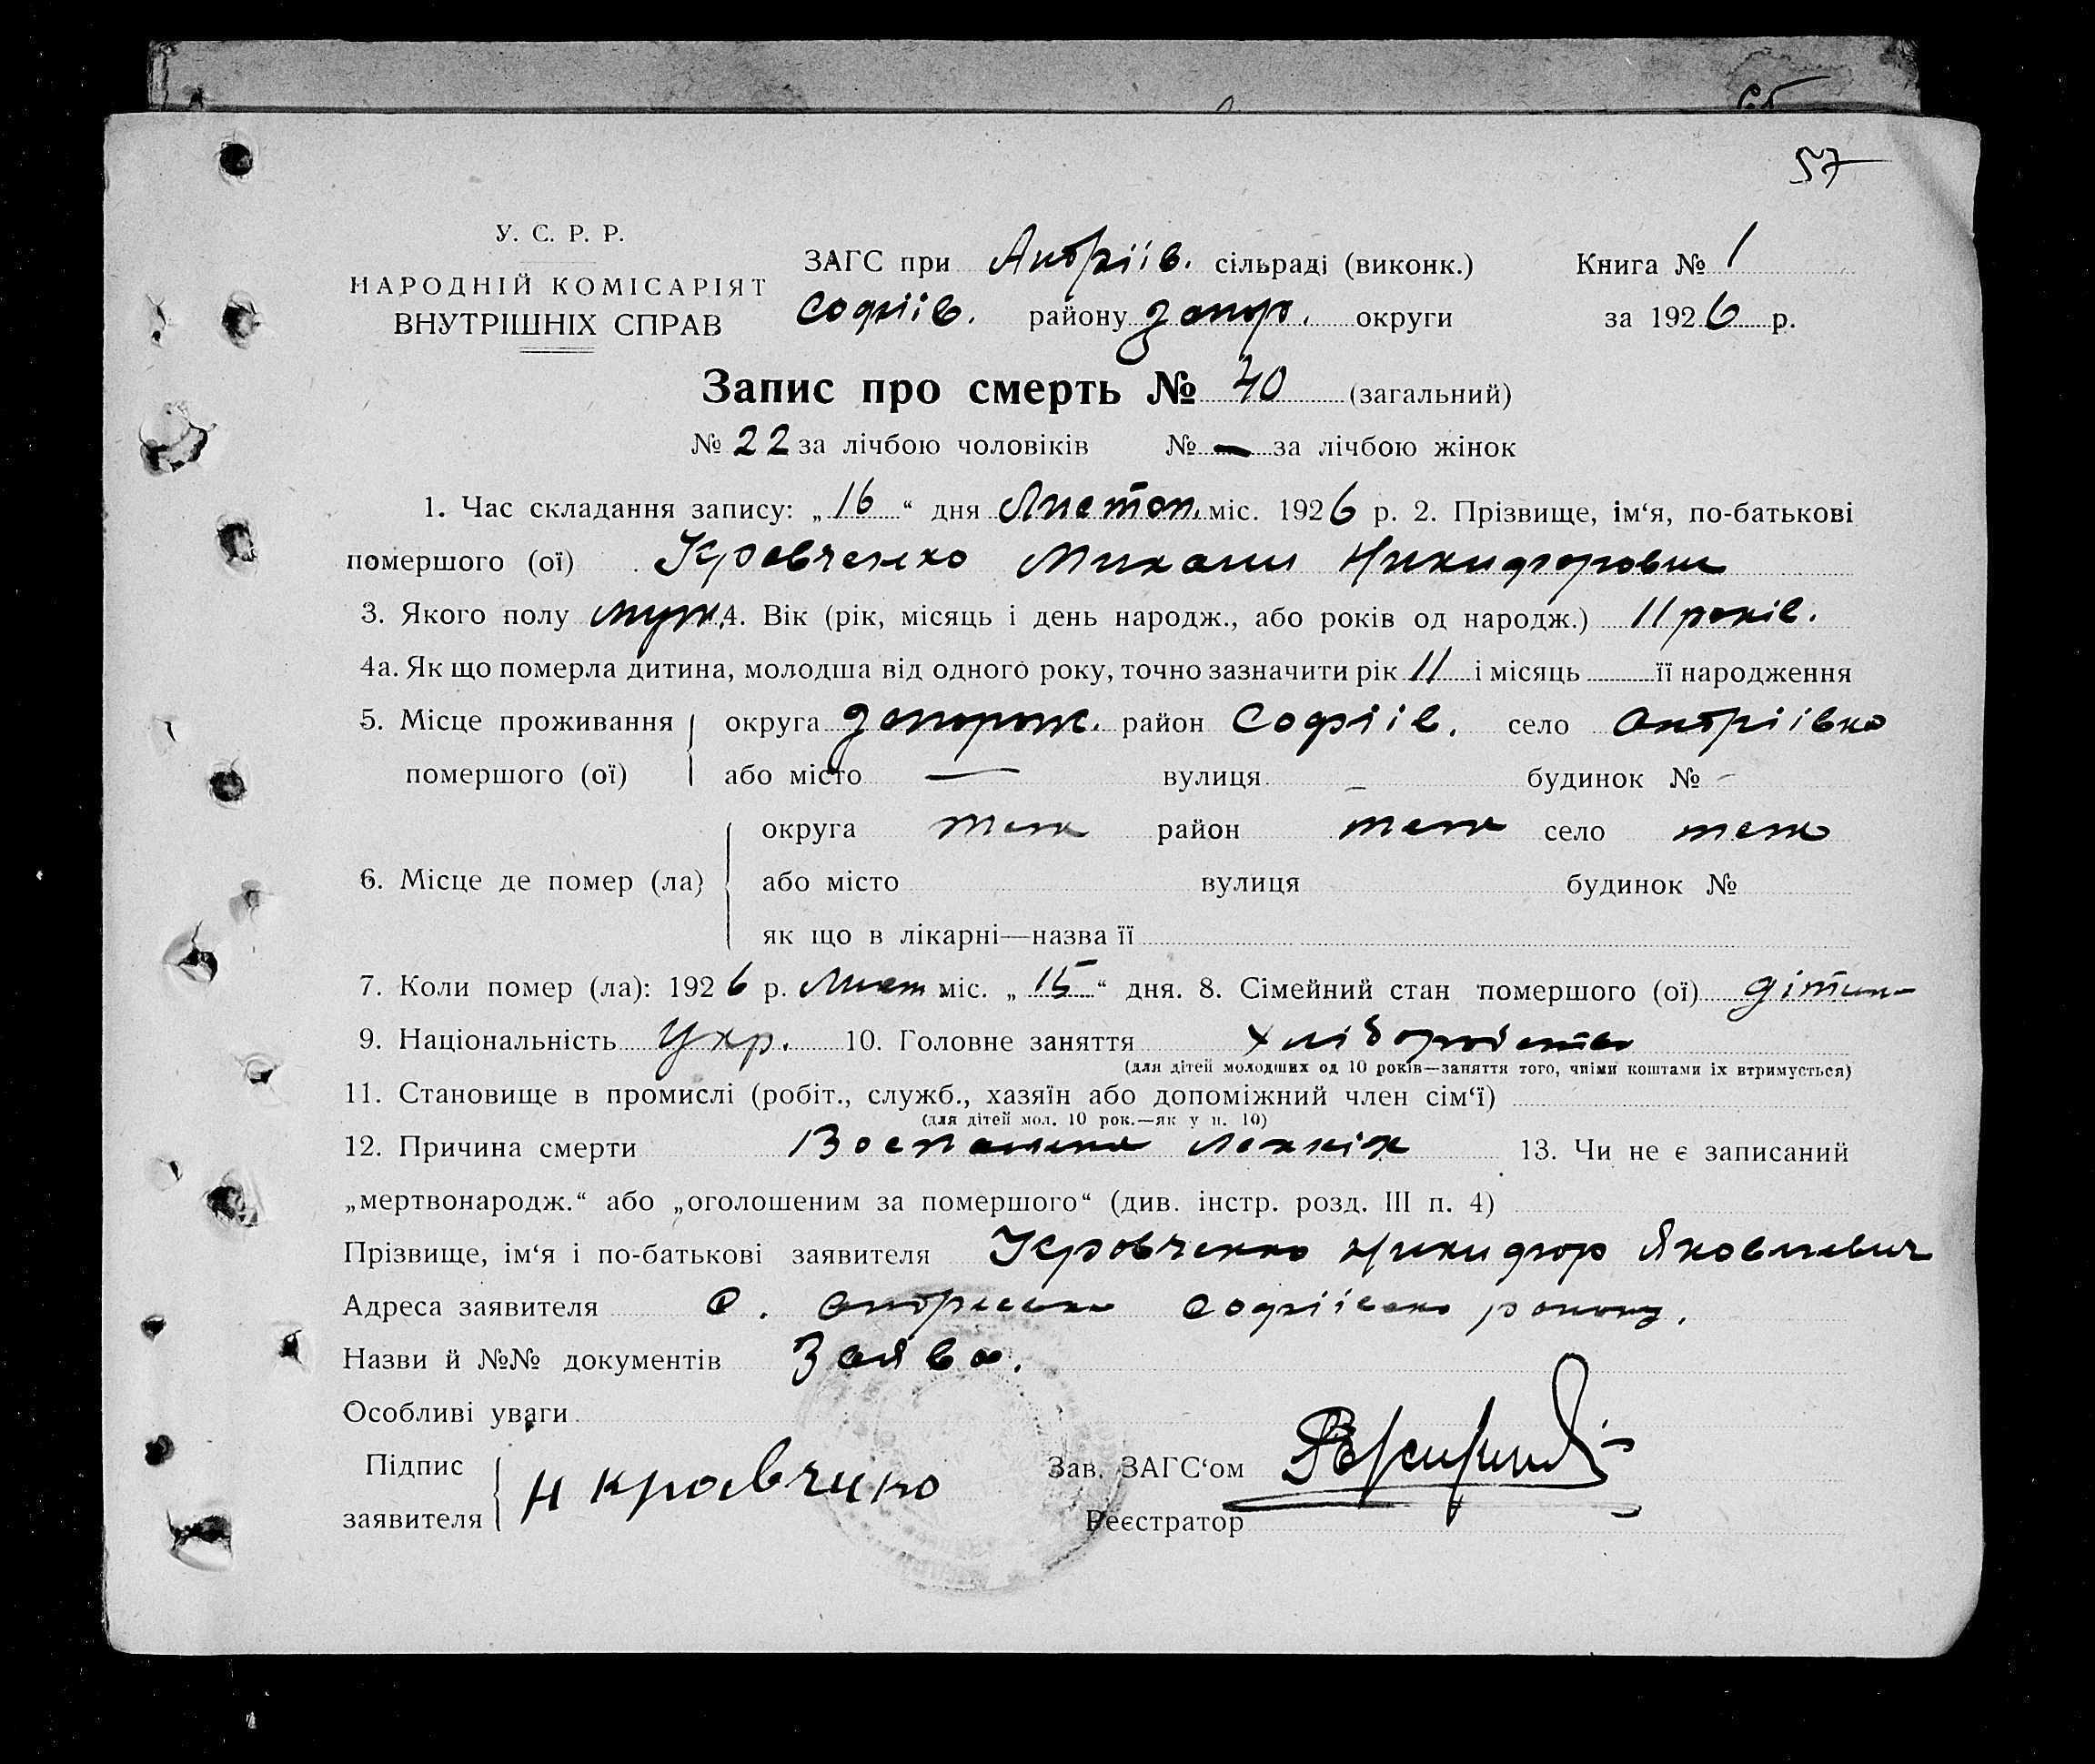 57
У. С. Р. Р.
НАРОДНІЙ КОМІСАРІЯТ
ВНУТРІШНІХ СПРАВ
ЗАГС при Андріїв. сільраді (виконк.)
Софіїв. району Запор. округи
Книга № 1
за 1926 р.
Запис про смерть № 40 (загальний)
№ 22 за лічбою чоловіків № — за лічбою жінок
1. Час складання запису: „16“ дня Листоп. міс. 1926 р. 2. Прізвище, ім‘я, по-батькові
помершого (ої) Кравченко Михаил Никифорович
3. Якого полу муж. 4. Вік (рік, місяць і день народж., або років од народж.) 11 років.
4а. Як що померла дитина, молодша від одного року, точно зазначити рік 11 і місяць її народження
5. Місце проживання округа Запорож. район Софіїв. село Андріївка
помершого (ої) або місто — вулиця – будинок № –
округа теж район теж село теж
6. Місце де помер (ла) або місто вулиця будинок №
як що в лікарні—назва її
7. Коли помер (ла): 1926 р. Лист міс. „15“ дня. 8. Сімейний стан помершого (ої) дітина
9. Національність Укр. 10. Головне заняття хліборобство
(для дітей молодших од 10 років—заняття того, чиїми коштами їх втримується)
11. Становище в промислі (робіт., служб., хазяїн або допоміжний член сім‘ї)
(для дітей мол. 10 рок.—як у п. 10)
12. Причина смерти Воспаление легких 13. Чи не є записаний
„мертвонародж.“ або „оголошеним за помершого“ (див. інстр. розд. III п. 4)
Прізвище, ім‘я і по-батькові заявителя Кравченко Никифор Яковлевич
Адреса заявителя с. Андріївка Софіївского району.
Назви й №№ документів Заява.
Особливі уваги
Підпис
заявителя Н кравчино
Зав. ЗАГС‘ом
Реєстратор